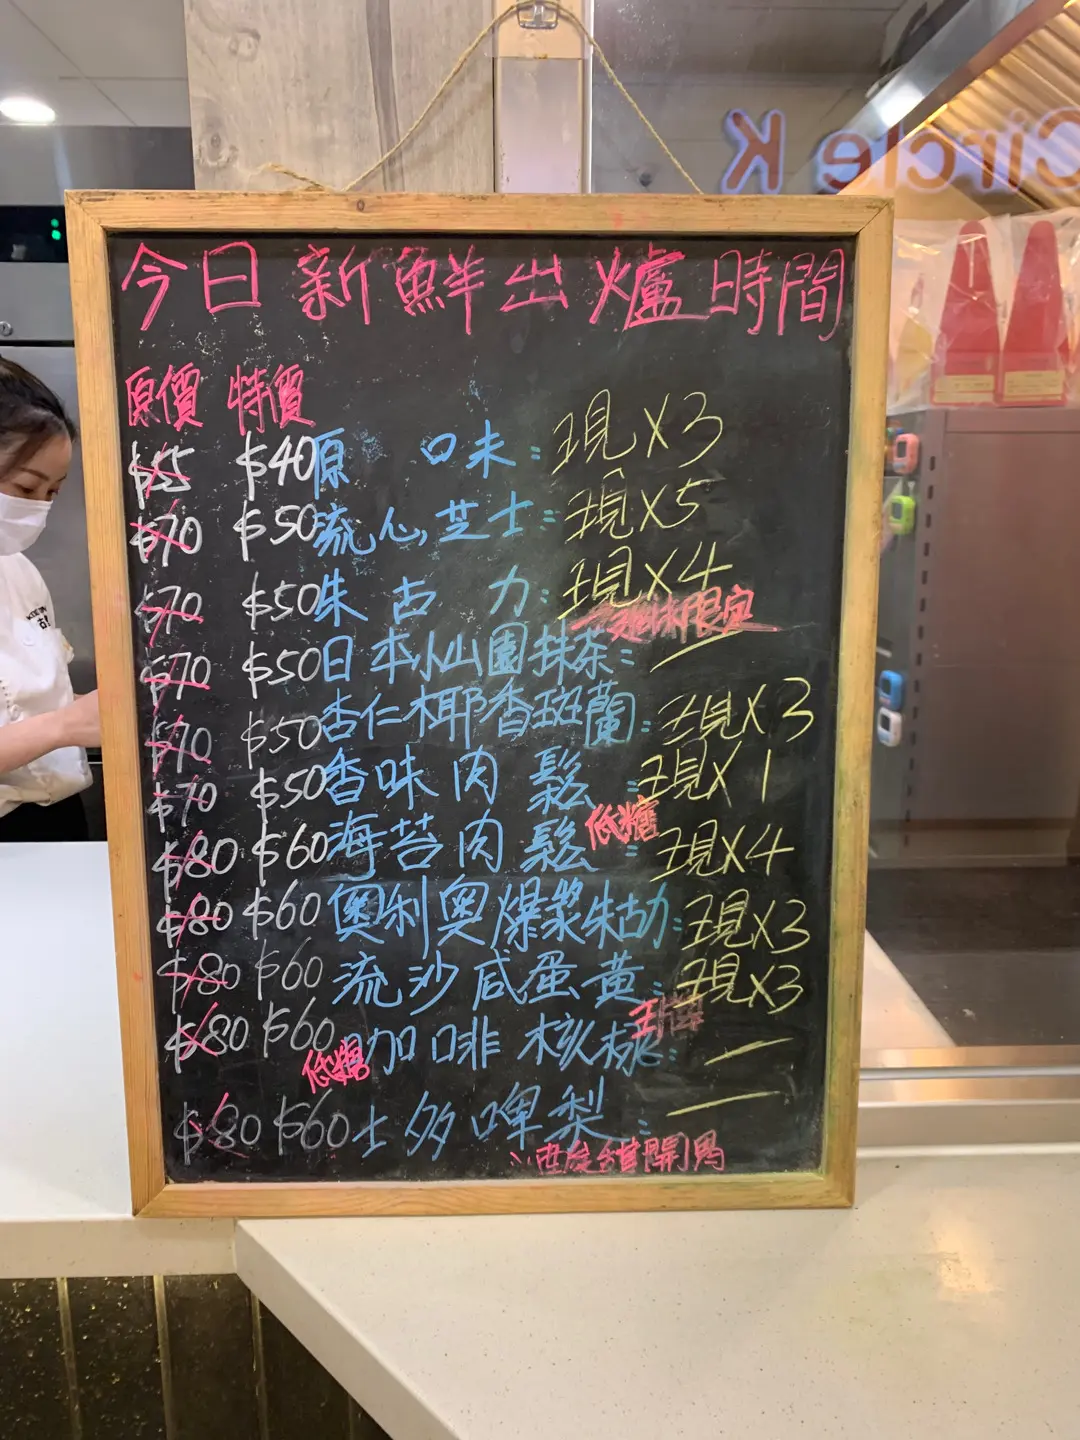 Circle K
今日新鮮出爐時間
原價 特價
$55 $40 原口味：現X3
$70 $50 流心芝士：現X5
$70 $50 朱古力：現X4
限定
$70 $50 日本小山園抹茶：—
$70 $50 杏仁椰香斑蘭：現X3
$70 $50 香味肉鬆：現X1
低糖
$80 $60 海苔肉鬆：現X4
$80 $60 奧利奧爆漿朱古力：現X3
$80 $60 流沙咸蛋黃：現X3
$80 $60 咖啡核桃：—
低糖
$80 $60 士多啤梨：—